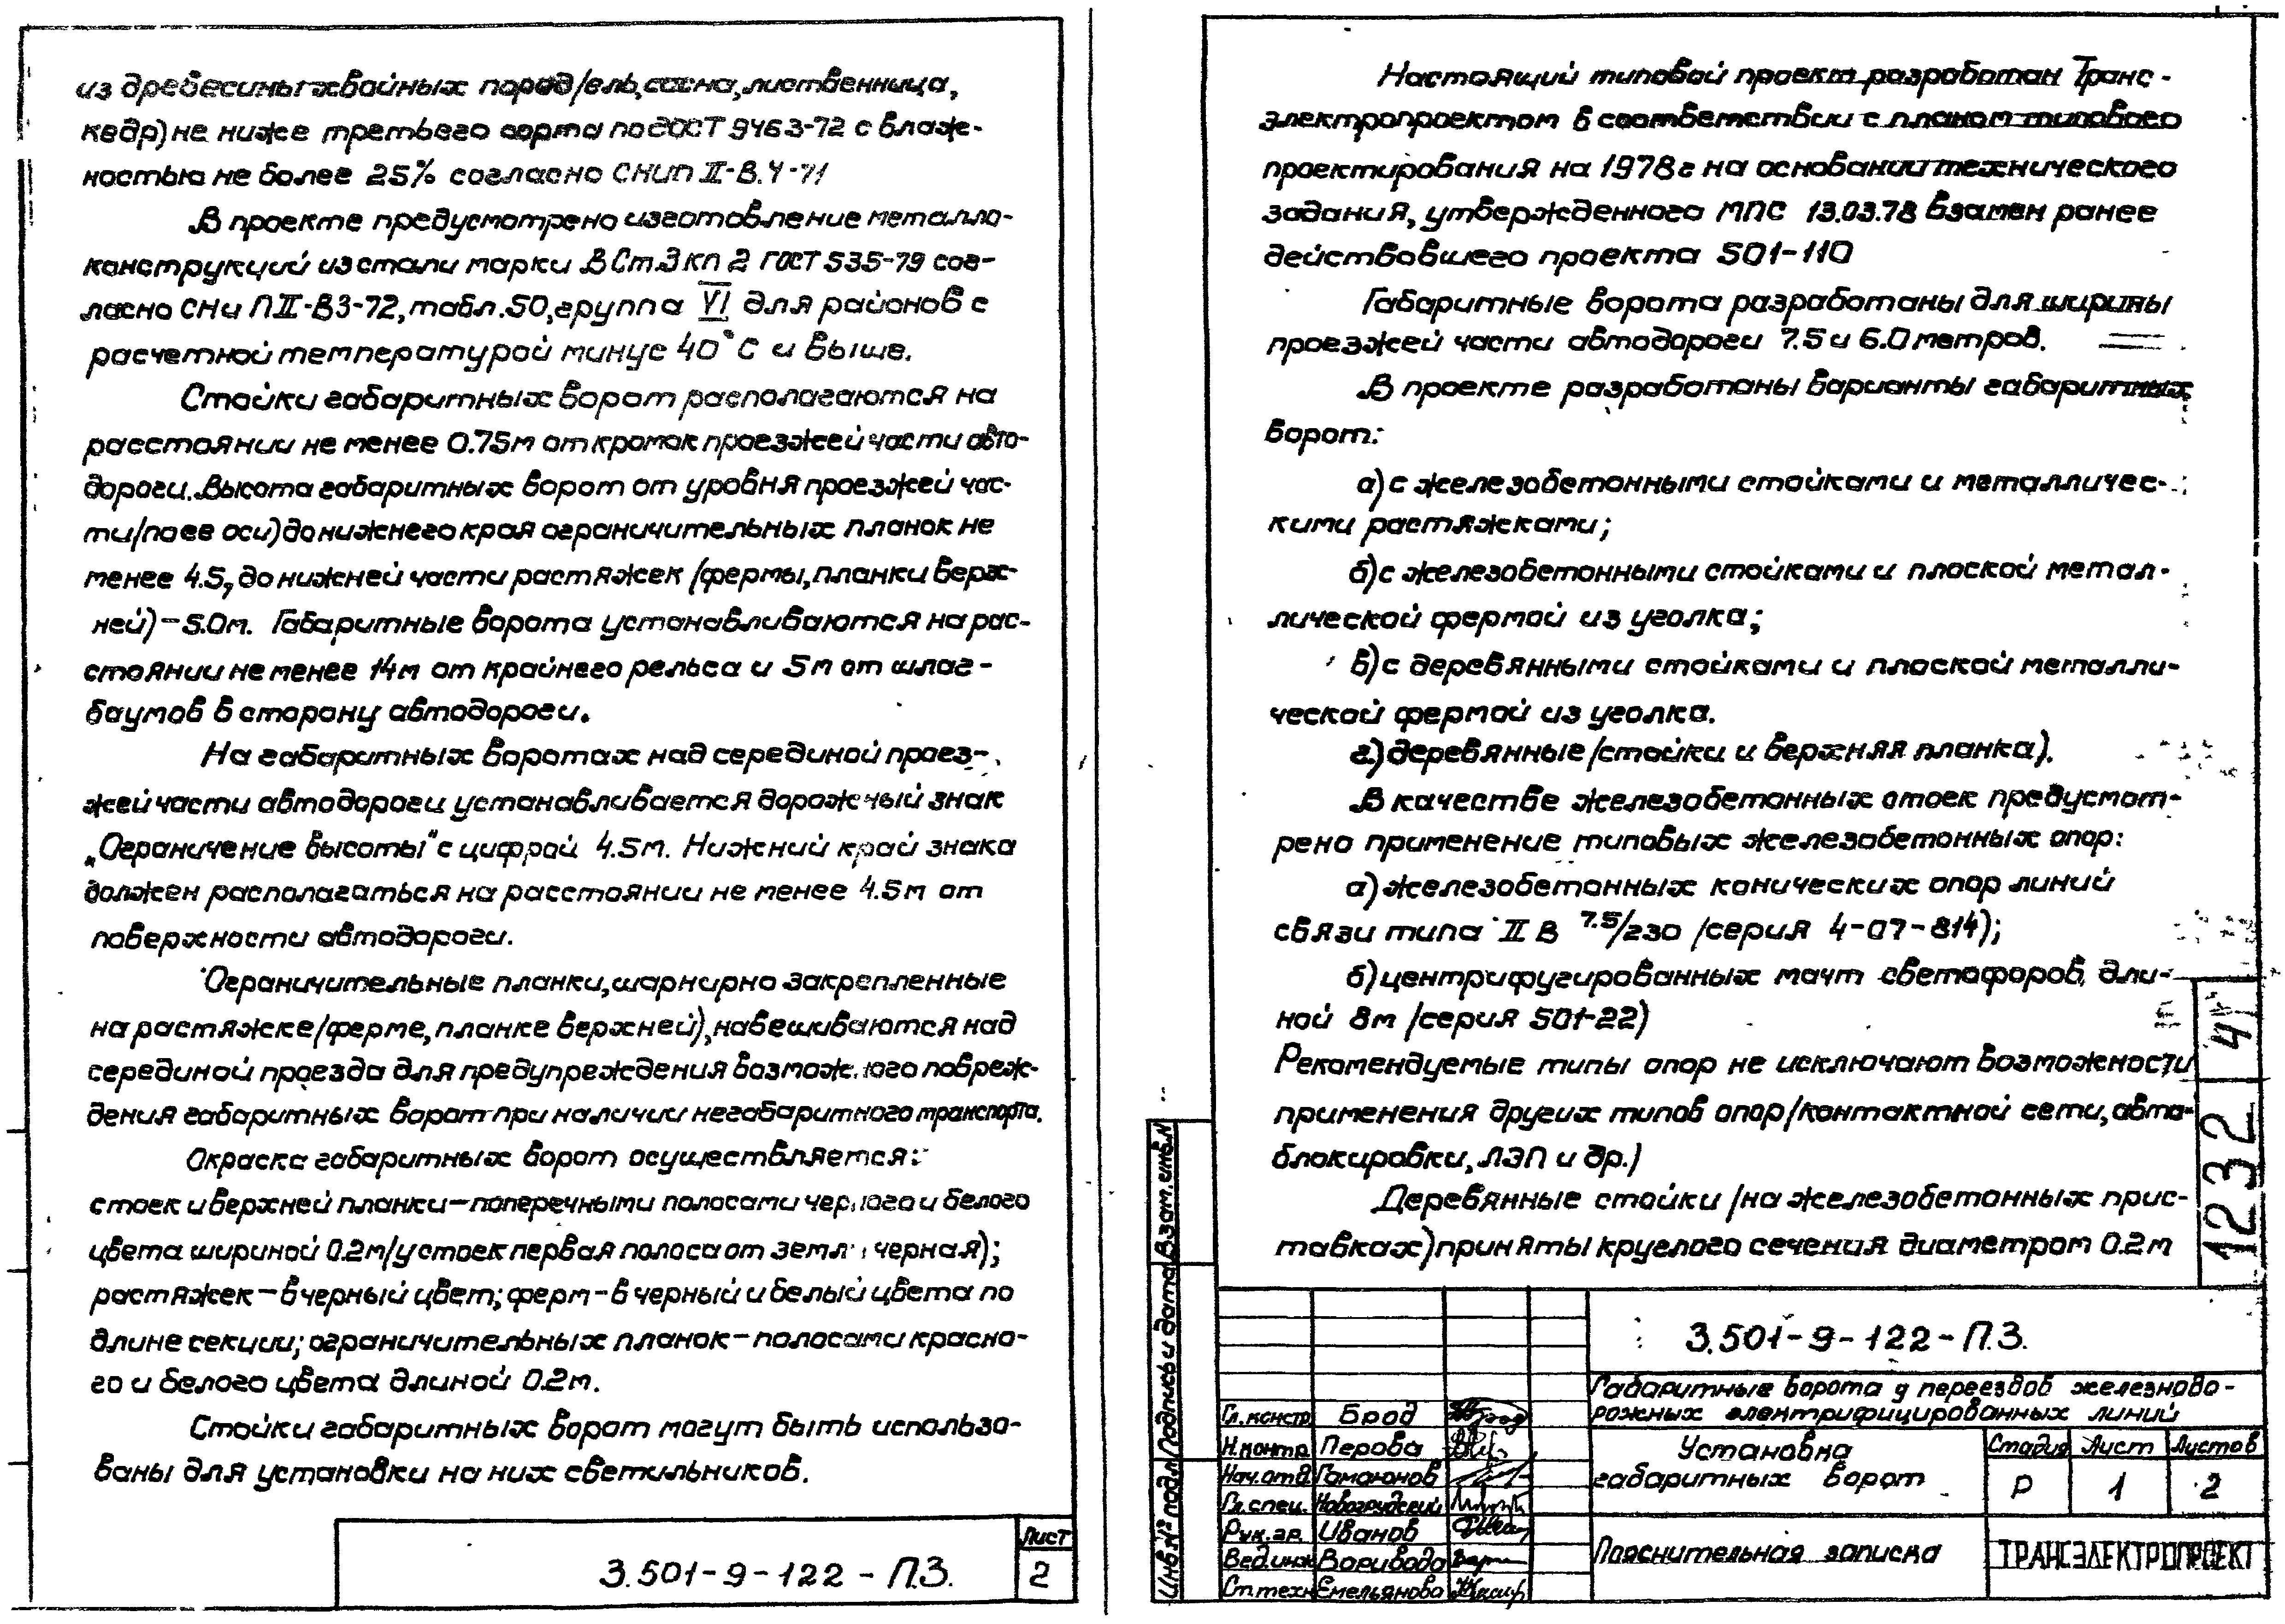 из древесины хвойных пород /ель, сосна, лиственница,
кедр) не ниже третьего сорта по ГОСТ 9463-72 с влаж-
ностью не более 25% согласно СНиП II-В.4-71
В проекте предусмотрено изготовление металло-
конструкций из стали марки ВСт.3 кп 2 ГОСТ 535-79 сог-
ласно СНиП II-В3-72, табл.50, группа VI для районов с
расчетной температурой минус 40°С и выше.
Стойки габаритных ворот располагаются на
расстоянии не менее 0.75м от кромок проезжей части авто-
дороги. Высота габаритных ворот от уровня проезжей час-
ти /по ее оси) до нижнего края ограничительных планок не
менее 4.5, до нижней части растяжек /фермы, планки верх-
ней) – 5.0м. Габаритные ворота устанавливаются на рас-
стоянии не менее 14м от крайнего рельса и 5м от шлаг-
баумов в сторону автодороги.
На габаритных воротах над серединой проез-
жей части автодороги устанавливается дорожный знак
„Ограничение высоты" с цифрой 4.5м. Нижний край знака
должен располагаться на расстоянии не менее 4.5м от
поверхности автодороги.
Ограничительные планки, шарнирно закрепленные
на растяжке /ферме, планке верхней), навешиваются над
серединой проезда для предупреждения возможного повреж-
дения габаритных ворот при наличии негабаритного транспорта.
Окраска габаритных ворот осуществляется:
стоек и верхней планки – поперечными полосами черного и белого
цвета шириной 0.2м /у стоек первая полоса от земли черная);
растяжек – в черный цвет; ферм – в черный и белый цвета по
длине секции; ограничительных планок – полосами красно-
го и белого цвета длиной 0.2м.
Стойки габаритных ворот могут быть использо-
ваны для установки на них светильников.
3.501-9-122-П.З.
Лист
2
Настоящий типовой проект разработан Транс-
электропроектом в соответствии с планом типового
проектирования на 1978г на основании технического
задания, утвержденного МПС 13.03.78 взамен ранее
действовавшего проекта 501-110
Габаритные ворота разработаны для ширины
проезжей части автодороги 7.5 и 6.0 метров.
В проекте разработаны варианты габаритных
ворот:
а) с железобетонными стойками и металличес-
кими растяжками;
б) с железобетонными стойками и плоской метал-
лической фермой из уголка;
в) с деревянными стойками и плоской металли-
ческой фермой из уголка.
г) деревянные /стойки и верхняя планка).
В качестве железобетонных стоек предусмот-
рено применение типовых железобетонных опор:
а) железобетонных конических опор линий
связи типа II В 7.5/230 /серия 4-07-814);
б) центрифугированных мачт светофоров, дли-
ной 8м /серия 501-22)
Рекомендуемые типы опор не исключают возможности
применения других типов опор /контактной сети, авто-
блокировки, ЛЭП и др.)
Деревянные стойки /на железобетонных прис-
тавках) приняты круглого сечения диаметром 0.2м
1232 4
Взам.инв.N
Подпись и дата
Инв.№ подл
3.501-9-122-П.З.
Габаритные ворота у переездов железнодо-
рожных электрифицированных линий
Гл.констр Брод
Н.контр. Перова
Нач.отд. Гамаюнов
Гл.спец. Новогрудский
Рук.гр. Иванов
Вед.инж Варивода
Ст.техн Емельянова
Установка
габаритных ворот
Стадия Лист Листов
Р 1 2
Пояснительная записка
ТРАНСЭЛЕКТРОПРОЕКТ